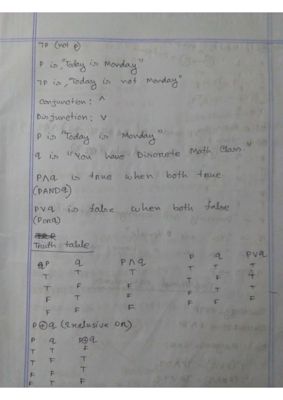 ¬P (not P)
P is, "Today is Monday"
¬P is, "Today is not Monday"
Conjunction: ^
Disjunction: v
P is "Today is Monday"
q is "You have Discrete Math Class."
P∧q is true when both true
(PANDq)
P∨q is false when both false
(PORq)
Truth table
P q P∧q P q P∨q
T T T T T T
T F F T F T
F T F F T T
F F F F F F
P⊕q (Exclusive OR)
P q P⊕q
T T F
T F T
F T T
F F F